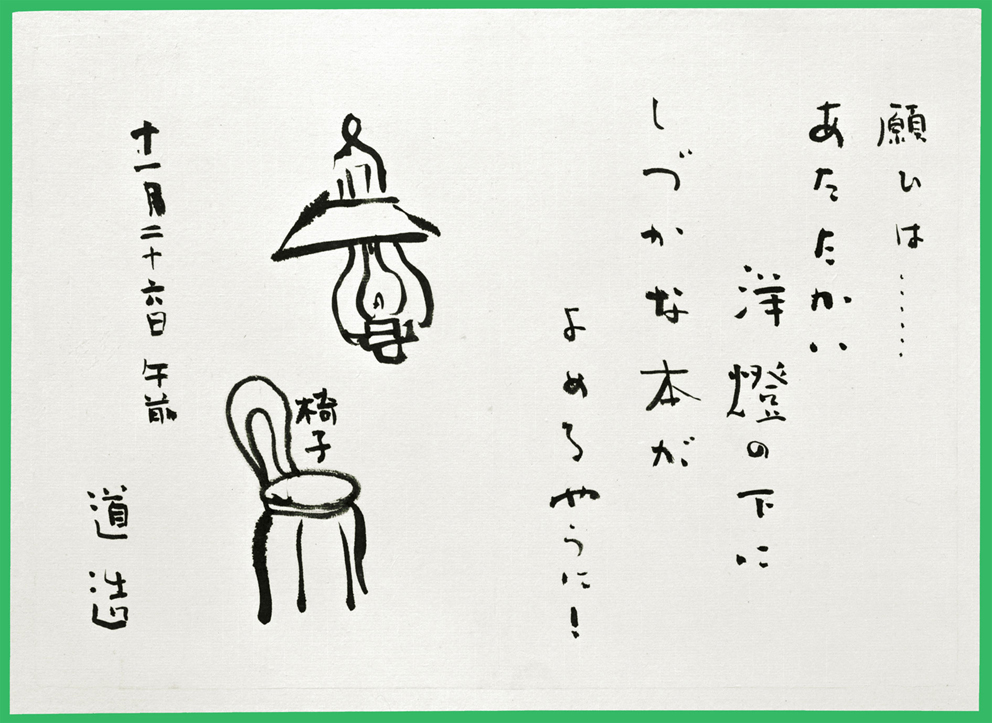 願ひは……
あたたかい
洋燈の下に
しづかな本が
よめるやうに!
椅子
十一月二十六日 午前
道造